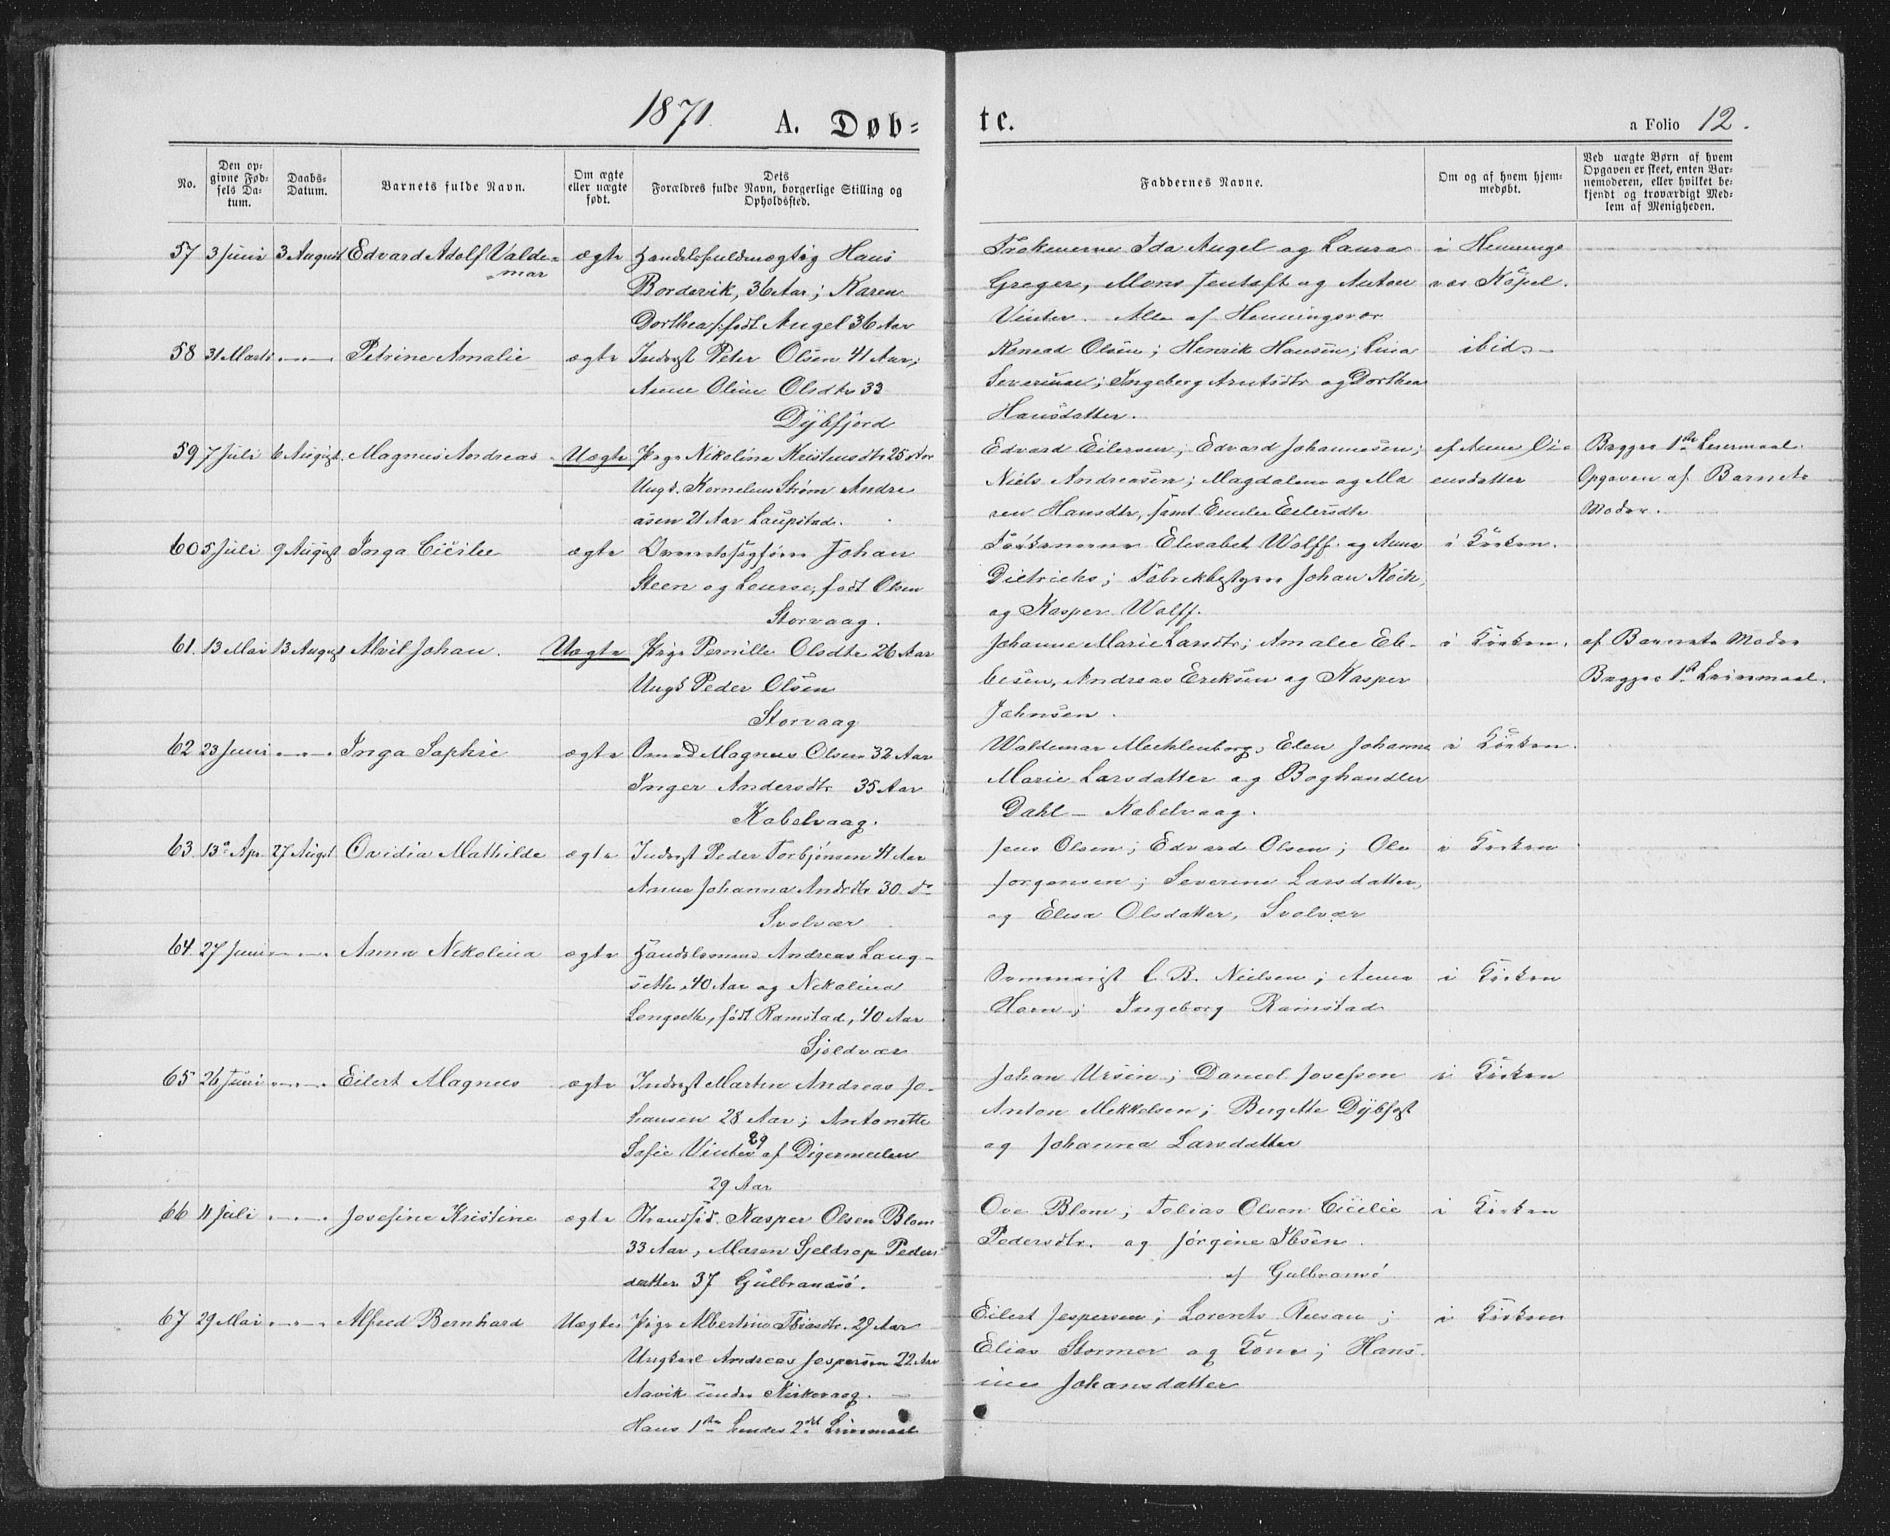 1871. A. Døb=
No.
Den op-
givne Fød-
sels Da-
tum.
Daabs-
Datum.
Barnets fulde Navn.
Om ægte
eller uægte
født.
Dets
Forældres fulde Navn, borgerlige Stilling og
Opholdssted.
57 3 Juni 3 August Edvard Adolf Valde- ægte Handelsfuldmægtig Hans
mar Bordevik, 36 Aar; Karen
Dorthea f. født Angel 36 Aar
58 31 Marts Petrine Amalie ægte Inderst Peter Olsen 41 Aar;
Anne Oline Olsdtr 33
Dybfjord
59 7 Juli 6 August Magnus Andreas Uægte Pige Nikoline Kristensdtr 25 Aar
Ungk. Kornelius Strøm Andre
asen 21 Aar Laupstad.
60 5 Juli 9 August Inga Cicilie ægte Johan
Steen og Lourse, født Olsen
Storvaag.
61. 13 Mai 13 August Alvil Johan. Uægte Pige Pernille Olsdtr 26 Aar
Ungk Peder Olsen
Storvaag
62 23 Juni Inga Sophie ægte Magnus Olsen 32 Aar
Inger Andersdtr 35 Aar
Kabelvaag.
63. 13 Apr. 27 Augst Ovidia Mathilde ægte Inderst Peder Torbjønsen 41 Aar
Anne Johanna Andrdtr 30
Svolvær
64. 27 Juni Anna Nikolina ægte Handelsmand Andreas Lang-
seth, 40 Aar og Nikolina
Langseth, født Ramstad, 40 Aar
Sjoldvær
65 26 Juni Eilert Magnus ægte Inderst Martin Andreas Jo-
hansen 28 Aar; Antonette
Sofie Vinter 29 af Digermulen
29 Aar
66 11 Juli Josefine Kristine ægte Strandsid. Kasper Olsen Blom
33 Aar, Maren Sjeldrop Peders
datter 37 Gulbransø.
67 29 Mai Alfred Bernhard Uægte Pige Albertine Tbiasdtr. 29 Aar
Ungkarl Andreas Jespersen 22 Aar
Aavik under Kirkevaag.
Hans 1ste hendes 2det Leiermaal
te.
a Folio 12.
Faddernes Navne.
Om og af hvem hjem-
medøbt.
Ved uægte Børn af hvem
Opgaven er skeet, enten Bar-
nemoderen, eller hvilket be-
kjendt og troværdigt Med-
lem af Menigheden.
Frøkenerne Ida Angel og Laura i Hennings
Greger, Mons Jentoft og Anton vær Kapel.
Vinter. Alle af Henningsvær
Konrad Olsen; Henrik Hansen; Lina ibid
Severine; Ingeberg Arntsdtr og Dorthea
Hansdatter.
Edvard Eilersen; Edvard Johannesen; af Anne Ole Begges 1ste Leiermaal.
Niels Andreasen; Magdalene og Ma ensdatter Opgaven af Barnets
ren Hansdtr, samt Emilie Eilersdtr Moder.
Frøkenerne Elisabet Wolff og Anna i Kirken.
Dietrichs; Fabrikbestyrer Johan Koch,
og Kasper Wolff.
Johanne Marie Larsdtr; Amalie Eb- i Kirken. af Barnets Moder
besen, Andreas Eriksen og Kasper Begges 1st Leiermaal.
Johnsen.
Waldemar Mechlenborg, Elen Johanna i Kirken.
Marie Larsdatter og Boghandler
Dahl - Kabelvaag.
Jens Olsen; Edvard Olsen; Ole i Kirken
Jørgensen; Severine Larsdatter,
og Elisa Olsdatter, Svolvær
C. B. Nielsen; Anna i Kirken
Horn; Ingeborg Ramstad
Johan Ursin; Daniel Josefsen i Kirken
Anton Mikkelsen; Bergitte Dybfest
og Johanna Larsdatter
Ove Blom; Tobias Olsen Cicilie i Kirken
Pedersdtr. og Jørgine Ibsen.
af Gulbransø
Eilert Jespersen; Lorents; i Kirken
Elias Stormer og Kone; Hans-
ine Johansdatter